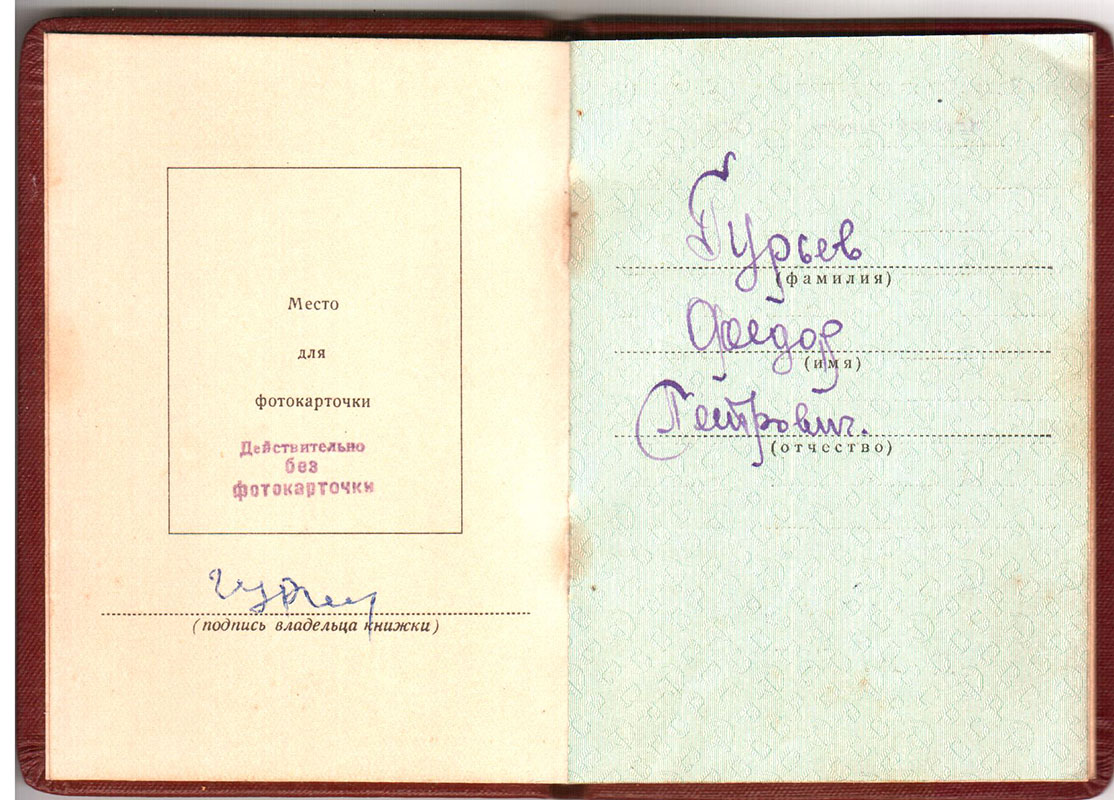 Место
для
фотокарточки
Действительно
без
фотокарточки
(подпись владельца книжки)
Гурьев
(фамилия)
Федор
(имя)
Петрович.
(отчество)